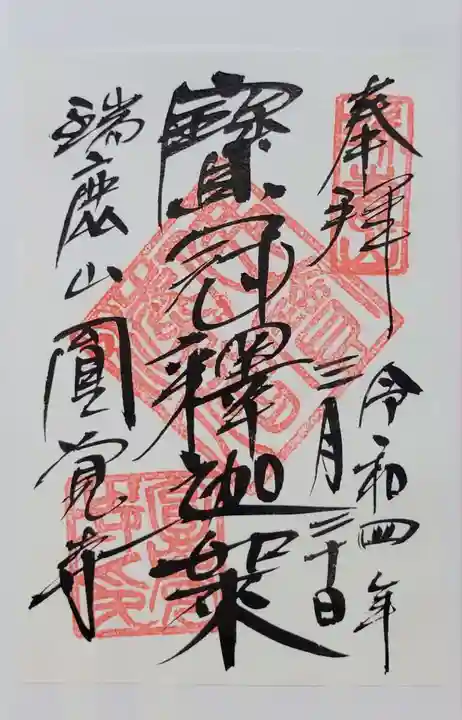 奉拝
令和四年
三月二十日
寳冠釋迦樂
瑞鹿山圓覚寺